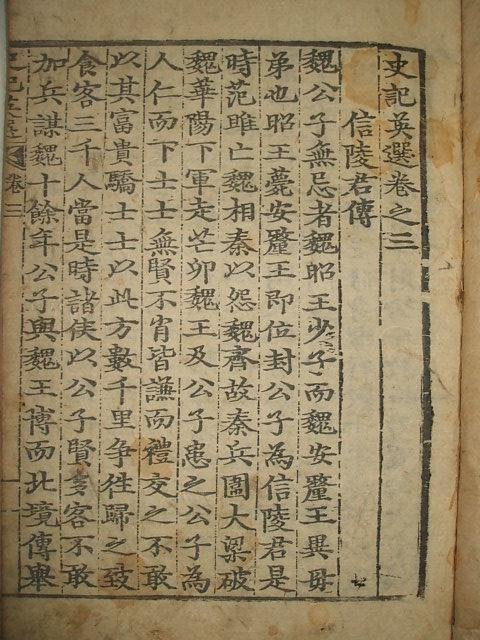 史記英選卷之三
信陵君傳
魏公子無忌者魏昭王少子而魏安釐王異母
弟也昭王薨安釐王即位封公子為信陵君是
時范雎亡魏相秦以怨魏齊故秦兵圍大梁破
魏華陽下軍走芒卯魏王及公子患之公子為
人仁而下士士無賢不肖皆謙而禮交之不敢
以其富貴驕士士以此方數千里爭徃歸之致
食客三千人當是時諸侯以公子賢多客不敢
加兵謀魏十餘年公子與魏王博而北境傳舉